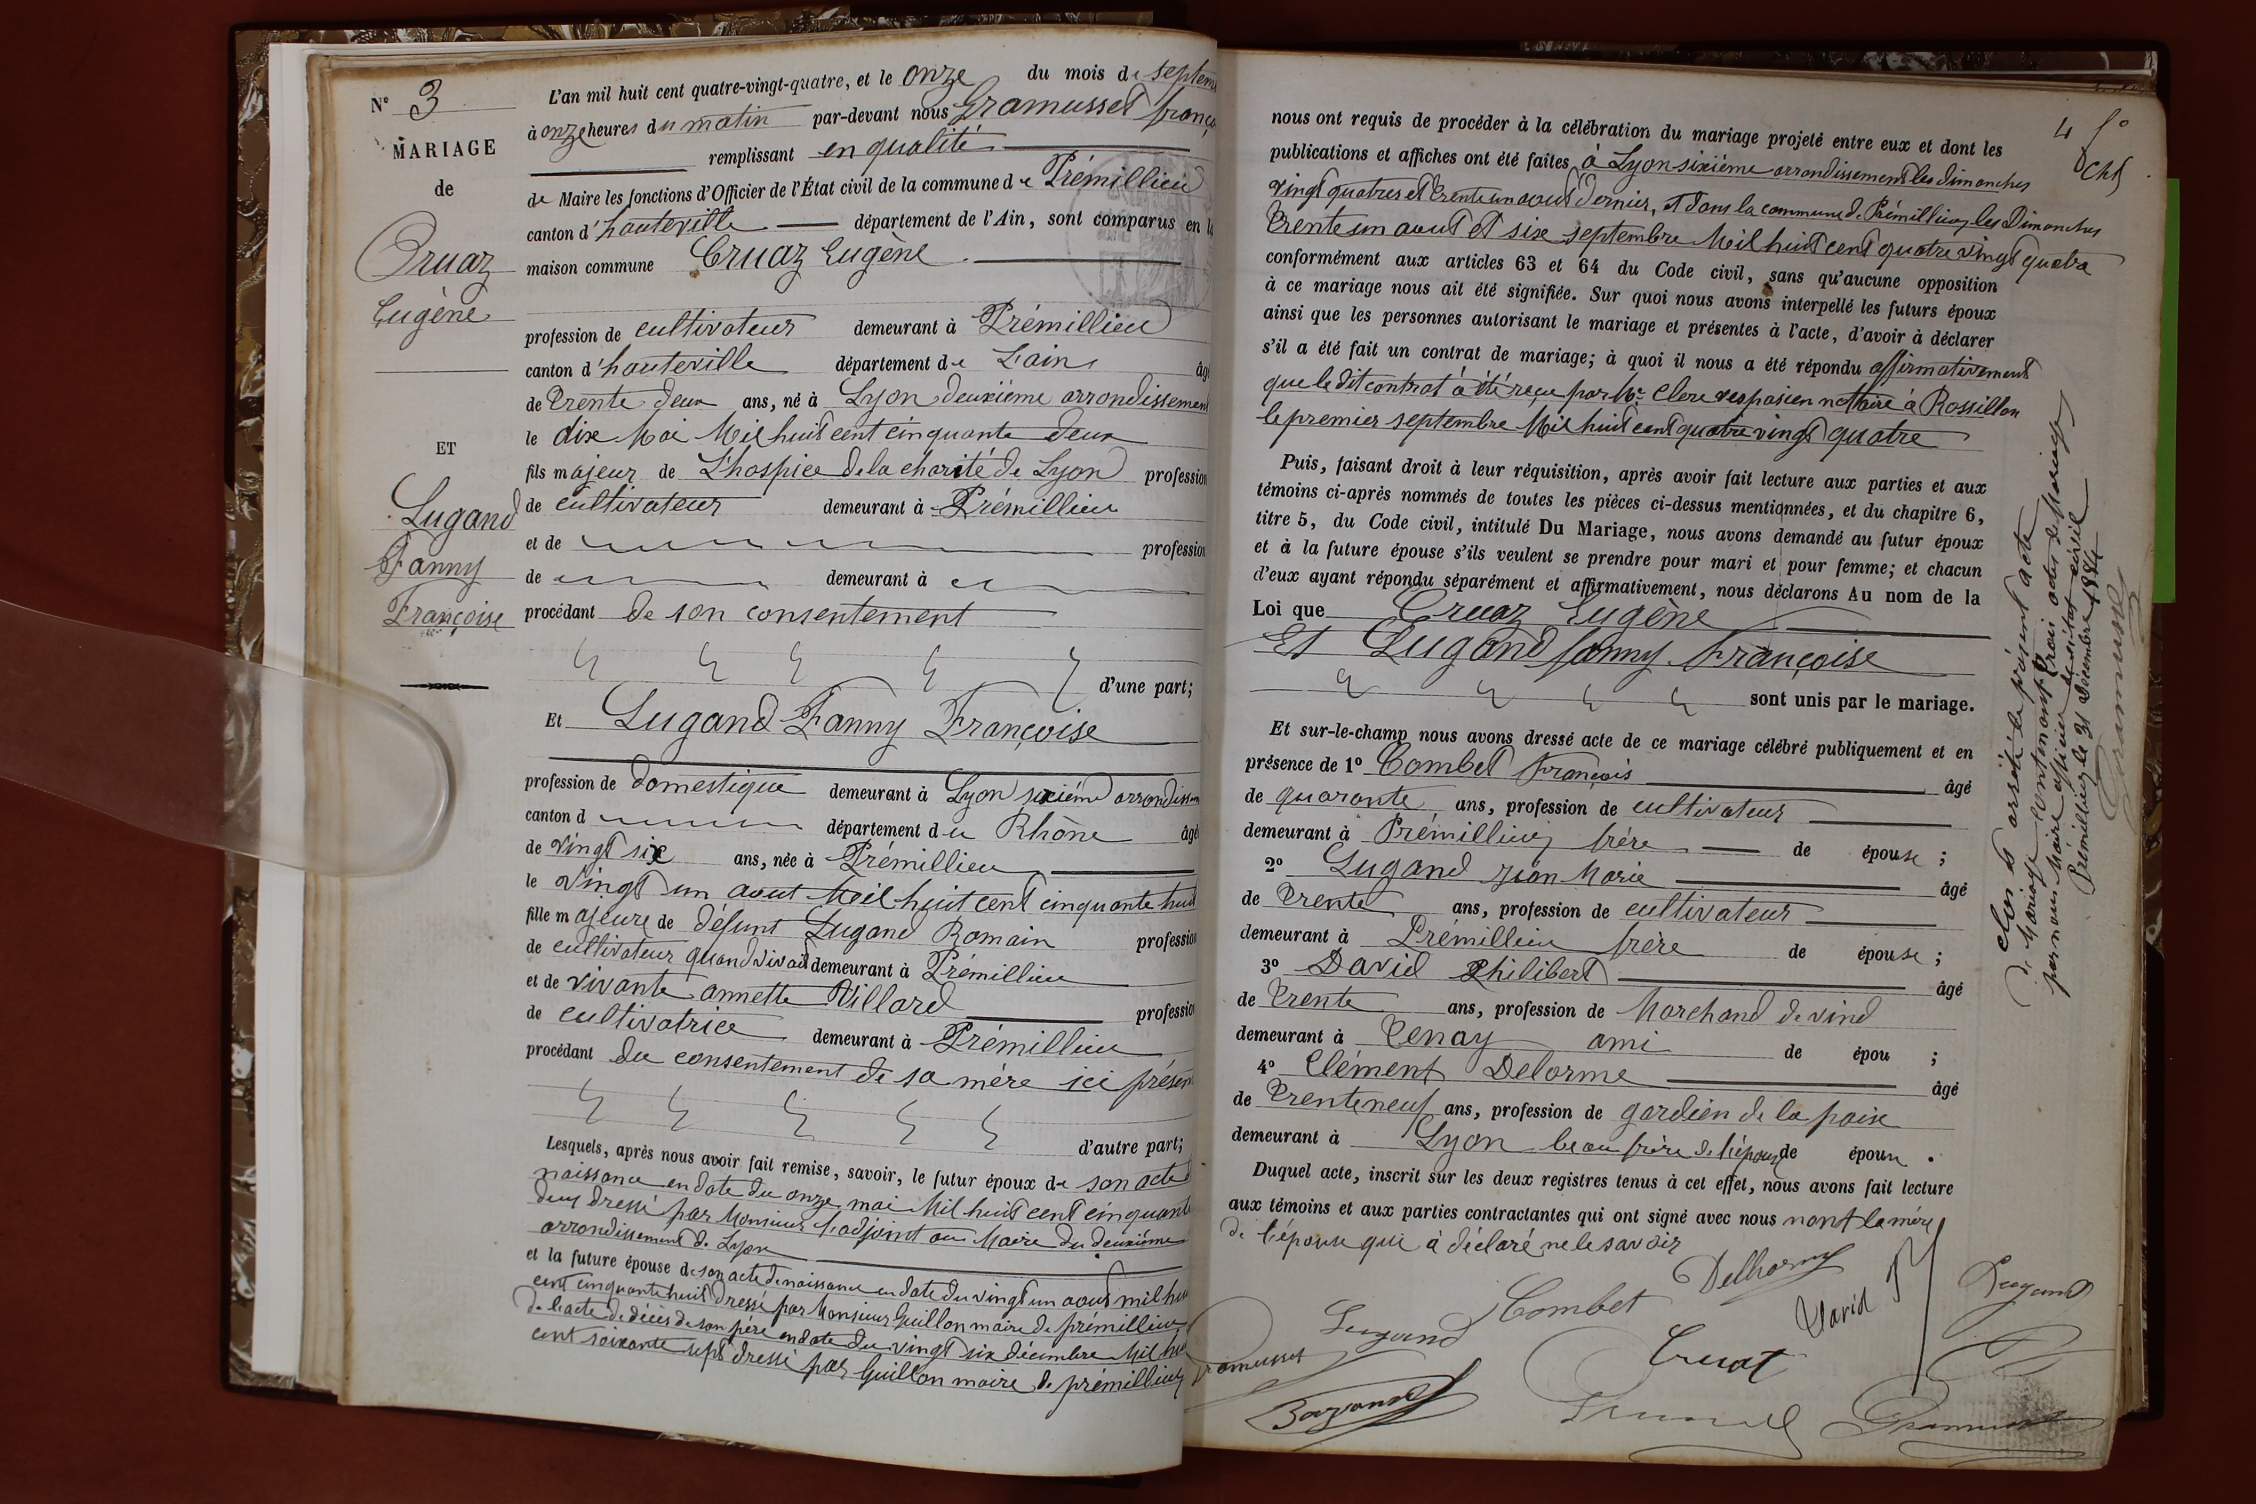 N° 3
MARIAGE
de
Cruaz
Eugène
ET
Lugand
Fanny
Françoise
L'an mil huit cent quatre-vingt-quatre, et le onze du mois de septem
à onze heures du matin par-devant nous Gramusset franço
remplissant en qualité
de Maire les fonctions d'Officier de l'État civil de la commune de Prémillieu
canton d'hauteville département de l'Ain, sont comparus en la
maison commune Cruaz Eugène
profession de cultivateur demeurant à Prémillieu
canton d'hauteville département de L'ain âgé
de trente deux ans, né à Lyon deuxième arrondissement
le dix Mai Mil huit cent cinquante deux
fils majeur de L'hospice de la charité de Lyon profession
de cultivateur demeurant à Prémillieu
et de profession
de demeurant à
procédant de son consentement
d'une part;
Et Lugand Fanny Françoise
profession de domestique demeurant à Lyon sixiéme arrondissem
canton d département du Rhône âgée
de vingt six ans, née à Prémillieu
le vingt un aout Mil huit cent cinquante huit
fille majeure de défunt Lugand Romain profession
de cultivateur quand vivait demeurant à Prémillieu
et de vivante annette Villard profession
de cultivatrice demeurant à Prémillieu
procédant du consentement de sa mère ici présent
d'autre part;
Lesquels, après nous avoir fait remise, savoir, le futur époux de son acte d
naissance en date du onze mai Mil huit cent cinquante
deux dressé par Monsieur l'adjoint au Maire du deuxième
arrondissement de Lyon
et la future épouse de son acte de naissance en date du vingt un aout mil hui
cent cinquante huit dressé par Monsieur Guillon maire de prémillieu
de l'acte de décès de son père en date du vingt six décembre Mil hui
cent soixante sept dressé par Guillon maire de prémillieu
4 f°
nous ont requis de procéder à la célébration du mariage projeté entre eux et dont les
publications et affiches ont été faites à Lyon sixiéme arrondissement les dimanches
vingt quatres et trente un aout dernier, et dans la commune de Prémillieu, les Dimanches
trente un aout et six septembre Mil huit cent quatre vingt quatre
conformément aux articles 63 et 64 du Code civil, sans qu'aucune opposition
à ce mariage nous ait été signifiée. Sur quoi nous avons interpellé les futurs époux
ainsi que les personnes autorisant le mariage et présentes à l'acte, d'avoir à déclarer
s'il a été fait un contrat de mariage; à quoi il nous a été répondu affirmativement
que le dit contrat à été reçu par Me Clerc vespasien nottaire à Rossillon
le premier septembre Mil huit cent quatre vingt quatre
Puis, faisant droit à leur réquisition, après avoir fait lecture aux parties et aux
témoins ci-après nommés de toutes les pièces ci-dessus mentionnées, et du chapitre 6,
titre 5, du Code civil, intitulé Du Mariage, nous avons demandé au futur époux
et à la future épouse s'ils veulent se prendre pour mari et pour femme; et chacun
d'eux ayant répondu séparément et affirmativement, nous déclarons Au nom de la
Loi que Cruaz Eugène
Et Lugand fanny Françoise
sont unis par le mariage.
Et sur-le-champ nous avons dressé acte de ce mariage célébré publiquement et en
présence de 1° Combet François âgé
de quarante ans, profession de cultivateur
demeurant à Prémillieu frére de épouse ;
2° Lugand jean Marie âgé
de trente ans, profession de cultivateur
demeurant à Prémillieu frère de épouse ;
3° David Philibert âgé
de trente ans, profession de Marchand de vind
demeurant à Tenay ami de épou ;
4° Clément Delorme âgé
de trente neuf ans, profession de gardien de la paix
demeurant à Lyon beau frère de l'épouse de époux .
Duquel acte, inscrit sur les deux registres tenus à cet effet, nous avons fait lecture
aux témoins et aux parties contractantes qui ont signé avec nous nonf la mére
de l'épouse qui à déclaré ne le savoir
Delhorme
Combet
David
Lugand
Lugand
Cruat
Gramusset
Clos et arrêté le présent acte
de Mariage contenant trois actes de Mariage
par nous Maire officier de l'état civil
Prémillieu le 31 Décembre 1884
Gramusset